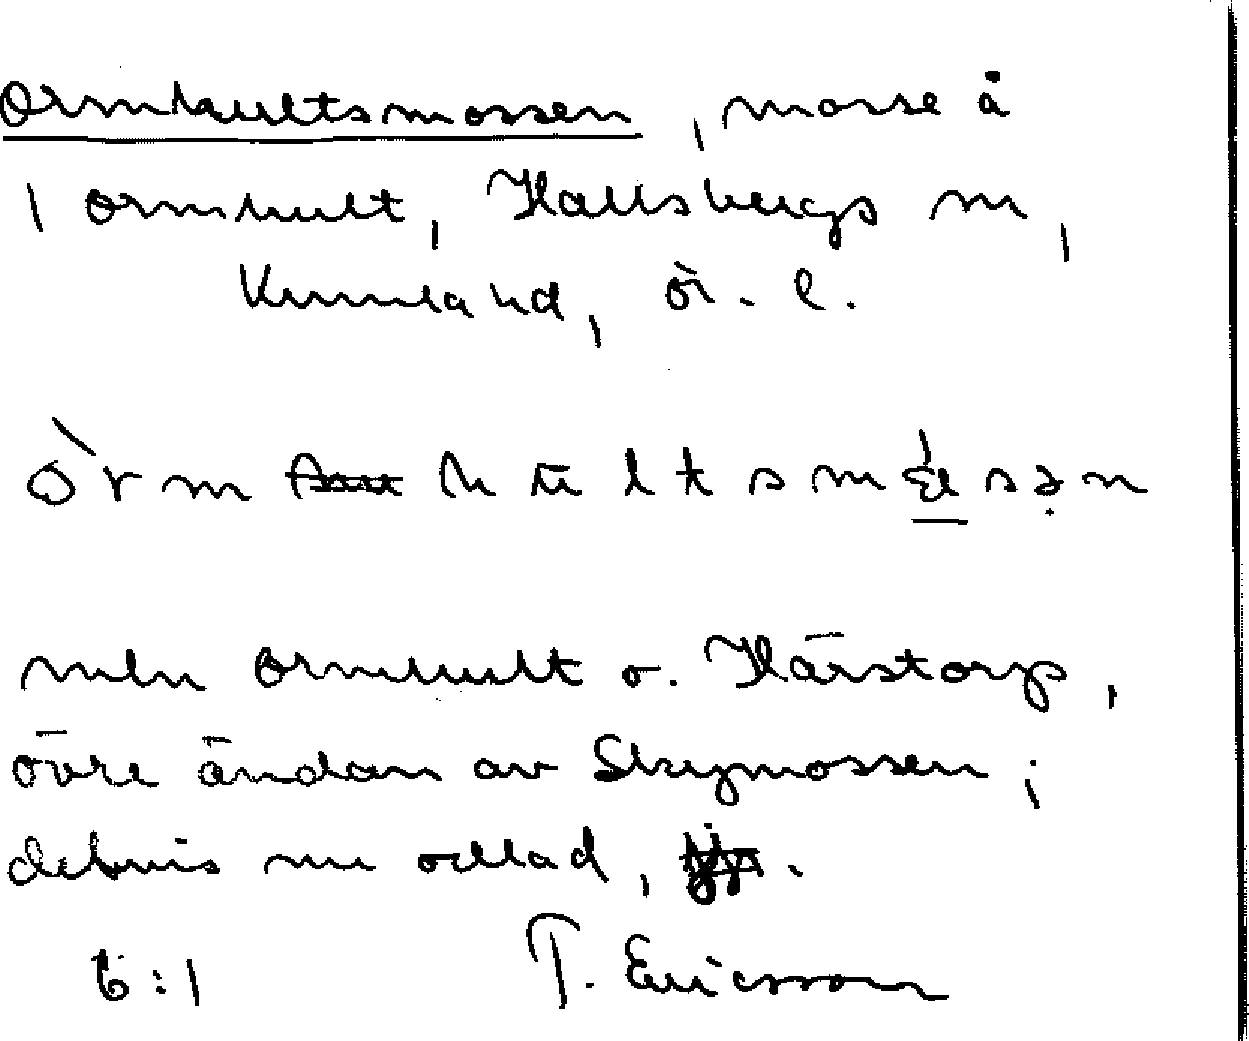 Ormhultsmossen, mosse å
1 Ormhult, Hallsbergs sn,
Kumla hd, Ör. l.
ò r m h u l t s m s ə n
mln Ormhult o. Härstorp,
övre ändan av Skymossen;
delvis nu odlad,
6:1 T. Ericsson